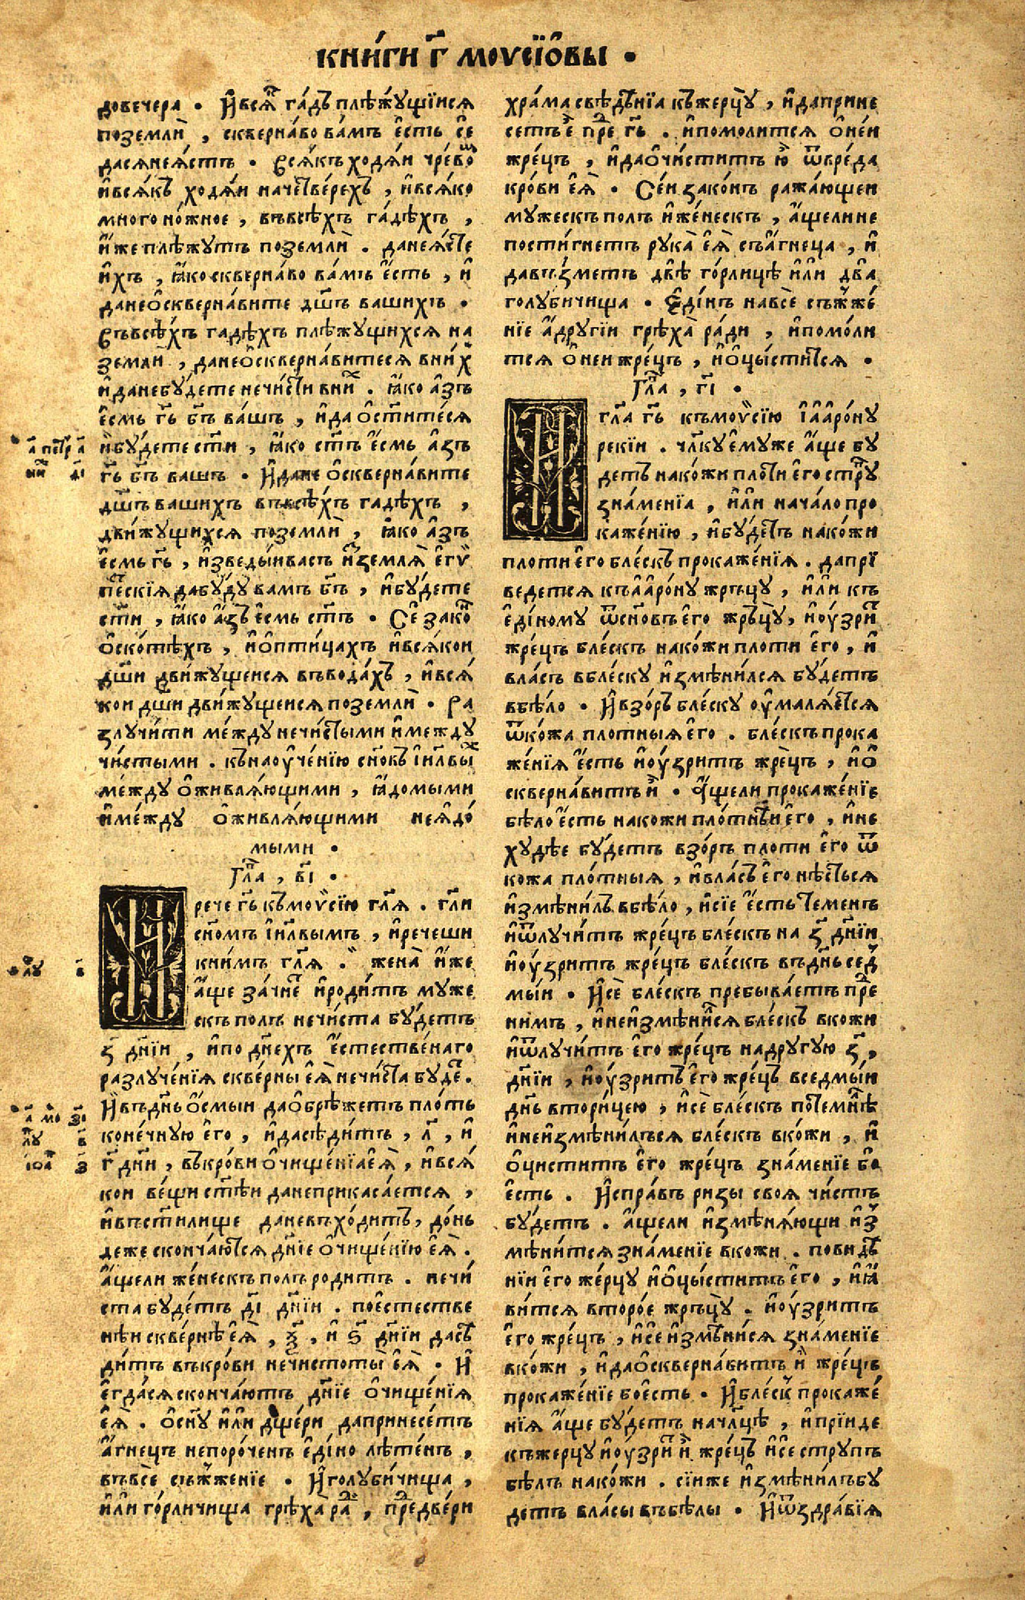 КНИ́ГИ Г҃ МОѴСІЇѠВЫ •
довечера • И҆ вся̑ га́дъ плѣжущїися
поземлѝ , скверна́во ва́мъ е҆сть се
дасянея́стъ • Всякъ ходя́и чре́во
и҆вся́къ ходя́и наче́тверехъ , и҆вся́ко
много но́жное , въвсѣ́хъ га́дѣхъ ,
и҆́же плѣ́жутъ поземлѝ . данея́сте
и҆́хъ , ꙗ҆́ко скверна́во ва́мъ е҆́сть , и҆
дане ѻ҆скверна́вите дш҃ъ вашихъ •
Въвсѣ́хъ гадѣхъ плѣ́жущихся на
землѝ , дане ѻ҆скверна́витеся вни́х
и҆ дане бу́дете нечи́сти вни́х . ꙗ҆ко а҆́зъ
е҆́смь гь҃ бг҃ъ ва́шъ , и҆да ѻ҆ст҃и́теся
и҆бу́дете ст҃и , ꙗ҆́ко ст҃ъ е҆́смь а҆́зъ
гь҃ бг҃ъ вашъ • И҆дане ѻ҆сквернавите
дш҃ъ вашихъ въвсѣ́хъ гадѣхъ ,
дви́жущихся поземлѝ , ꙗ҆ко а҆зъ
е҆смь гь҃ , и҆зведы́и васъ и҆з земля̀ е҆гѵ
петскїя дабу́ду вамъ бг҃ъ , и҆бу́дете
ст҃и , ꙗ҆ко а҆́зъ е҆смь ст҃ъ • Се́ зако́н
ѻ҆ скотѣхъ , и҆ ѻ҆ птицахъ и҆вся́кои
дш҃и движущеися въвода́хъ , и҆вся́
кои дш҃и движущеися поземлѝ • Ра
злучи́ти ме́жду нечи́стыми и҆между
чи́стыми . къ наꙋче́нїю сн҃овъ і҆и҃лвых
ме́жду ѻ҆живля́ющими , ꙗ҆до́мыми
и҆ме́жду ѻ҆живля́ющими нея҆до́
мыми •
Гл҃а , в҃і •
И҆рече гь҃ къ моѷсїю гл҃я . гл҃и
сн҃омъ і҆и҃лвымъ , и҆рече́ши
кни́мъ гл҃я . жена̀ и҆́же
а҆́ще зачне́т и҆роди́тъ муже
скъ полъ нечи́ста бу́детъ
з҃ дн҃їи , и҆по дн҃ехъ е҆стестве́наго
разлуче́нїя скве́рны е҆я̀ нечи́ста буде́т .
И҆въ дн҃ь ѻ҆смыи да ѻ҆брѣ́жетъ пло́ть
коне́чную е҆го , и҆да сѣди́тъ , л҃ , и҆
г҃ дн҃и , въкро́ви ѻ҆чище́нїа е҆я̀ , и҆вся́
кои ве́щи ст҃ѣи данеприкаса́ется ,
и҆въст҃илище даневъхо́дитъ , до́нь
деже скончаются дн҃їе ѻ҆чище́нїю е҆я̀ .
а҆́щели же́нескъ полъ родитъ . нечи́
ста бу́детъ д҃і дн҃їи . пое҆стестве
нѣи скве́рнѣ е҆я̀ , ѯ҃ , и҆ ѕ҃ дн҃їи дасѣ
ди́тъ въкро́ви нечистоты̀ е҆я̀ • И҆
е҆гда́ся скончаютъ дн҃їе ѻ҆чище́нїя
е҆я̀ . ѻ҆ сн҃у и҆́ли ѻ҆ дще́ри дапринесе́тъ
а҆́гнецъ непоро́ченъ е҆ди́но лѣ́тенъ ,
въвсѐ съжже́нїе • И҆ голубичища ,
и҆́ли го́рличища грѣ́ха ра́ди , пред две́ри
а҃ петр а҃
л҃у в҃
храма свѣдѣнїа къ жерцу , и҆дапри́не
сетъ е҆̀ пре́д гь҃ . и҆помо́лится ѻ҆ не́и
жре́цъ , и҆да ѻ҆чи́ститъ ю҆̀ ѿ вреда
кро́ви е҆я̀ • Се́и зако́нъ ража́ющеи
мужескъ полъ и҆же́нескъ , а҆́щелине
пости́гнетъ рука̀ е҆я̀ съ а҆гнеца , и҆
давъзметъ двѣ̀ го́рлицѣ и҆́ли два̀
голубичища • Е҆ди́нъ навсѐ съжже́
нїе а҆ другїи грѣ́ха ра́ди , и҆помо́ли
тся ѻ҆ неи жре́цъ , и҆ ѻ҆цы́стится •
Гл҃а , г҃і •
И҆гл҃а гь҃ къмоѷсїю і҆ а҆аро́ну
рекїи . чл҃ку е҆муже а҆́ще бу
детъ накожи пло́ти е҆го стру́п
зна́менїа , и҆́ли нача́ло про
каже́нїю , и҆бу́детъ нако́жи
плоти е҆го бле́скъ прокаже́нїя . дапрї
ведется къ а҆аро́ну жръцу , и҆ли къ
е҆ди́ному ѿ сн҃овъ е҆го жрьцу , и҆ ѹ҆́зрит
жрецъ бле́скъ нако́жи плоти е҆го , и҆
вла́съ вбле́ску и҆змѣни́лся будетъ
вбѣло • И҆ взоръ бле́ску ѹ҆маля́ется
ѿ кожа пло́тныя е҆го . бле́скъ прока
же́нїя е҆сть и҆ ѹ҆́зритъ жре́цъ , и҆ ѻ҆
сквернави́тъ и҆̀ • А҆щели прокаже́нїе
бѣло е҆сть накожи пло́тнѣи е҆го , и҆не
ху́дѣе бу́детъ взоръ плоти е҆го ѿ
кожа пло́тныя , и҆вла́съ е҆го нѣ́сться
и҆змѣни́лъ вбѣло , и҆сїе е҆сть темен
и҆ ѿлучи́тъ жрецъ бле́скъ на з҃ дн҃їи
и҆ ѹ҆́зритъ жре́цъ бле́скъ въ дн҃ь сед
мы́и • И҆сѐ блескъ пребываетъ пре́д
нимъ , и҆неи҆змѣни́ся блескъ вкожи
и҆ ѿлучи́тъ е҆го жре́цъ надругую з҃ ,
дн҃їи , и҆ ѹ҆́зритъ е҆го жре́цъ вседмы́и
дн҃ь втори́цею , и҆сѐ бле́скъ потемнѣ̀
и҆неи҆змѣни́лъся бле́скъ вкожи , и҆
ѻ҆цистить е҆го жре́цъ зна́менїе бо
е҆сть . И҆ справъ ри́зы своя чи́стъ
бу́детъ . а҆щели и҆змѣня́ющи и҆з
мѣни́тся зна́менїе вкожи . повидѣ
нїи е҆го же́рцу и҆ ѻ҆цы́ститъ е҆го , и҆ꙗ҆
ви́тся второ́е жръцу . и҆ ѹ҆́зритъ
е҆го жре́цъ , и҆сѐ и҆змѣни́ся зна́менїе
вкожи , и҆да ѻ҆скверна́витъ и҆̀ жре́цъ
прокаже́нїе бо е҆сть • И҆ бле́скъ прокаже́
нїя а҆ще бу́детъ начл҃цѣ , и҆прїиде
къ жерцу и҆ ѹ҆зри́т и҆̀ жре́цъ и҆се струпъ
бѣлъ накожи . сїиже и҆змѣни́лъ бу
детъ вла́сы въбѣ́лы • И҆ ѿ здра́вїя